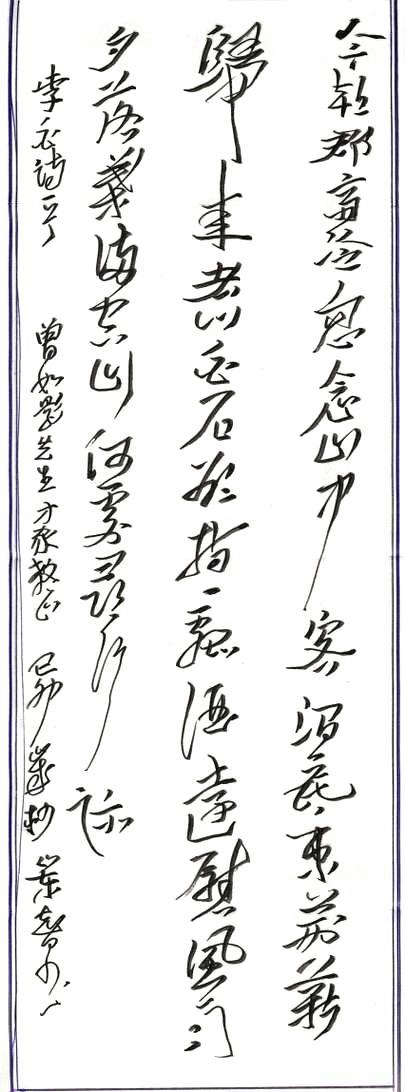 今朝郡齋冷忽念山中客澗底束荊薪
歸來煮白石欲持一瓢酒遠慰風雨
夕落葉滿空山何處尋行跡
李白詩一首 曾如影先生方家教正 己卯歲抄